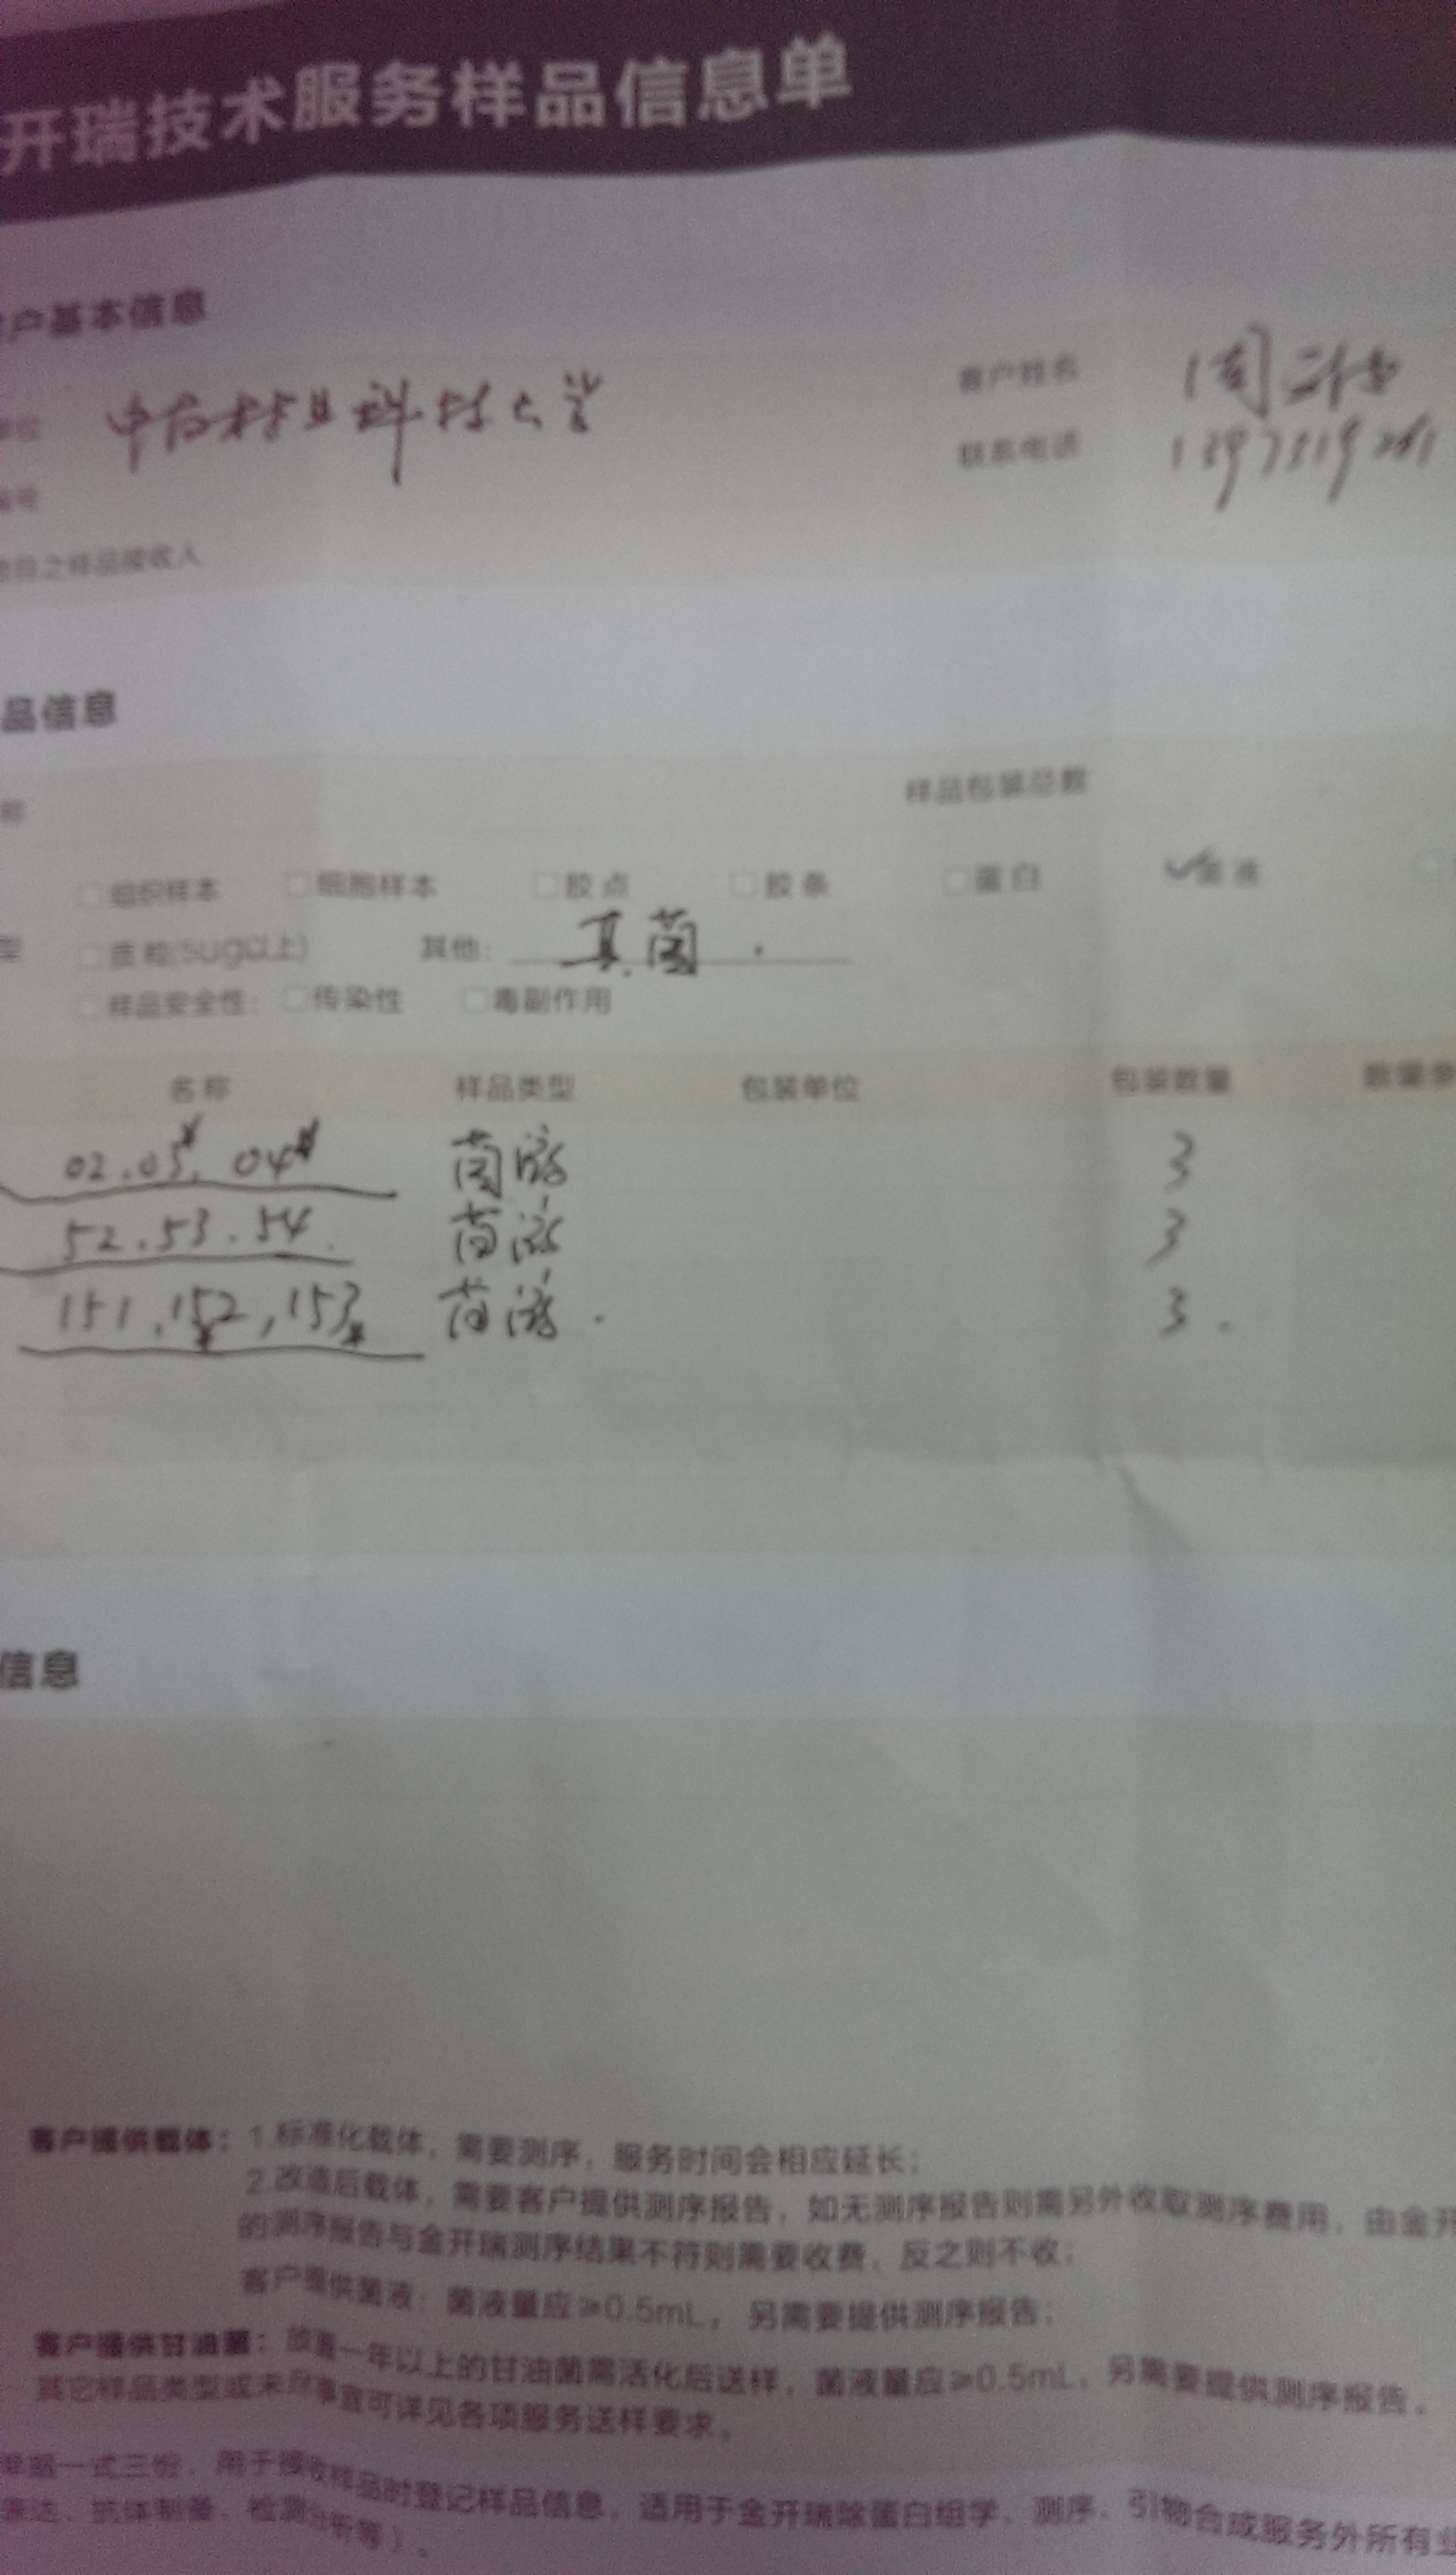 开瑞技术服务样品信息单
户基本信息
单位 中南林业科技大学 客户姓名 周
编号 联系电话
项目之样品接收人
品信息
称 样品包装总数
组织样本 细胞样本 胶点 胶条 蛋白 菌液
型 质粒(5ug以上) 其他: 真菌.
样品安全性: 传染性 毒副作用
名称 样品类型 包装单位 包装数量
02.03, 04 菌液 3
52.53.54. 菌液 3
151,152,153 菌液. 3.
信息
客户提供载体: 1.标准化载体,需要测序,服务时间会相应延长;
2.改造后载体,需要客户提供测序报告,如无测序报告则需另外收取测序费用,由金开
的测序报告与金开瑞测序结果不符则需要收费,反之则不收;
客户提供菌液: 菌液量应≥0.5mL, 另需要提供测序报告;
客户提供甘油菌: 放置一年以上的甘油菌需活化后送样,菌液量应≥0.5mL,另需要提供测序报告。
其它样品类型或未尽事宜可详见各项服务送样要求。
单据一式三份,用于接收样品时登记样品信息,适用于金开瑞除蛋白组学、测序、引物合成服务外所有业
表达、抗体制备、检测分析等)。